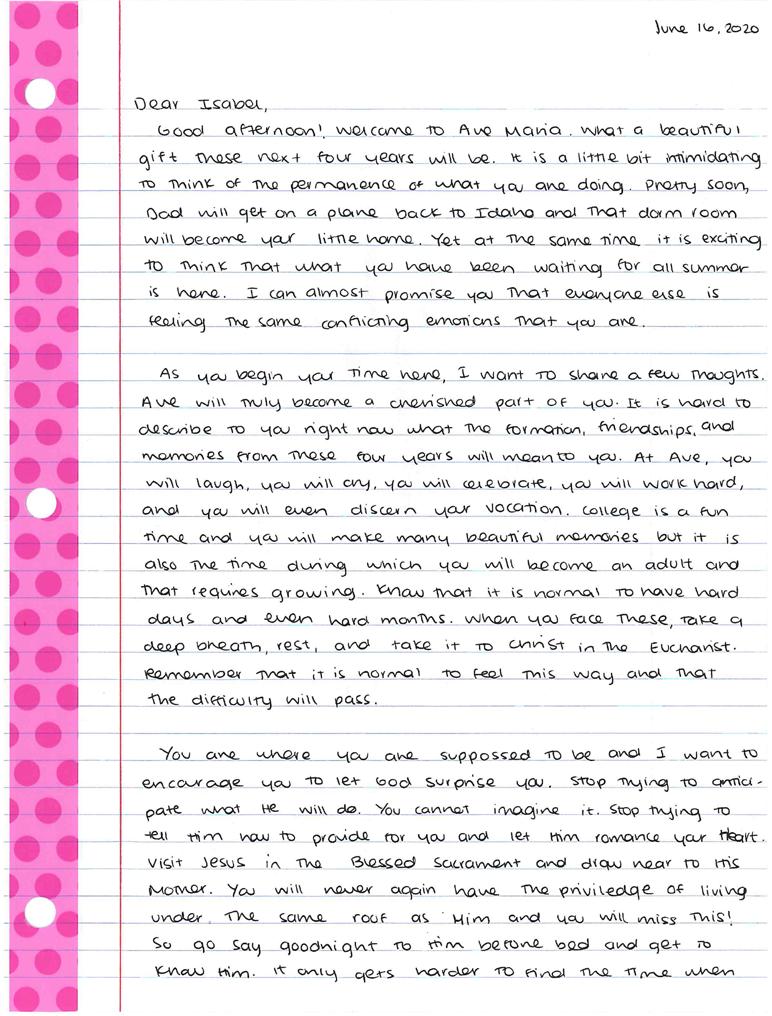 June 16, 2020
Dear Isabel,
Good afternoon! Welcome to Ave Maria. What a beautiful
gift these next four years will be. It is a little bit intimidating
to think of the permanence of what you are doing. Pretty soon,
Dad will get on a plane back to Idaho and that dorm room
will become your little home. Yet at the same time it is exciting
to think that what you have been waiting for all summer
is here. I can almost promise you that everyone else is
feeling the same conflicting emotions that you are.
As you begin your time here, I want to share a few thoughts.
Ave will truly become a cherished part of you. It is hard to
describe to you right now what the formation, friendships, and
memories from these four years will mean to you. At Ave, you
will laugh, you will cry, you will celebrate, you will work hard,
and you will even discern your vocation. College is a fun
time and you will make many beautiful memories but it is
also the time during which you will become an adult and
that requires growing. Know that it is normal to have hard
days and even hard months. When you face these, take a
deep breath, rest, and take it to Christ in the Eucharist.
Remember that it is normal to feel this way and that
the difficulty will pass.
You are where you are suppossed to be and I want to
encourage you to let God surprise you. Stop trying to antici-
pate what He will do. You cannot imagine it. Stop trying to
tell Him how to provide for you and let Him romance your heart.
Visit Jesus in the Blessed Sacrament and draw near to His
Mother. You will never again have the priviledge of living
under the same roof as Him and you will miss this!
So go say goodnight to Him before bed and get to
know Him. It only gets harder to find the time when